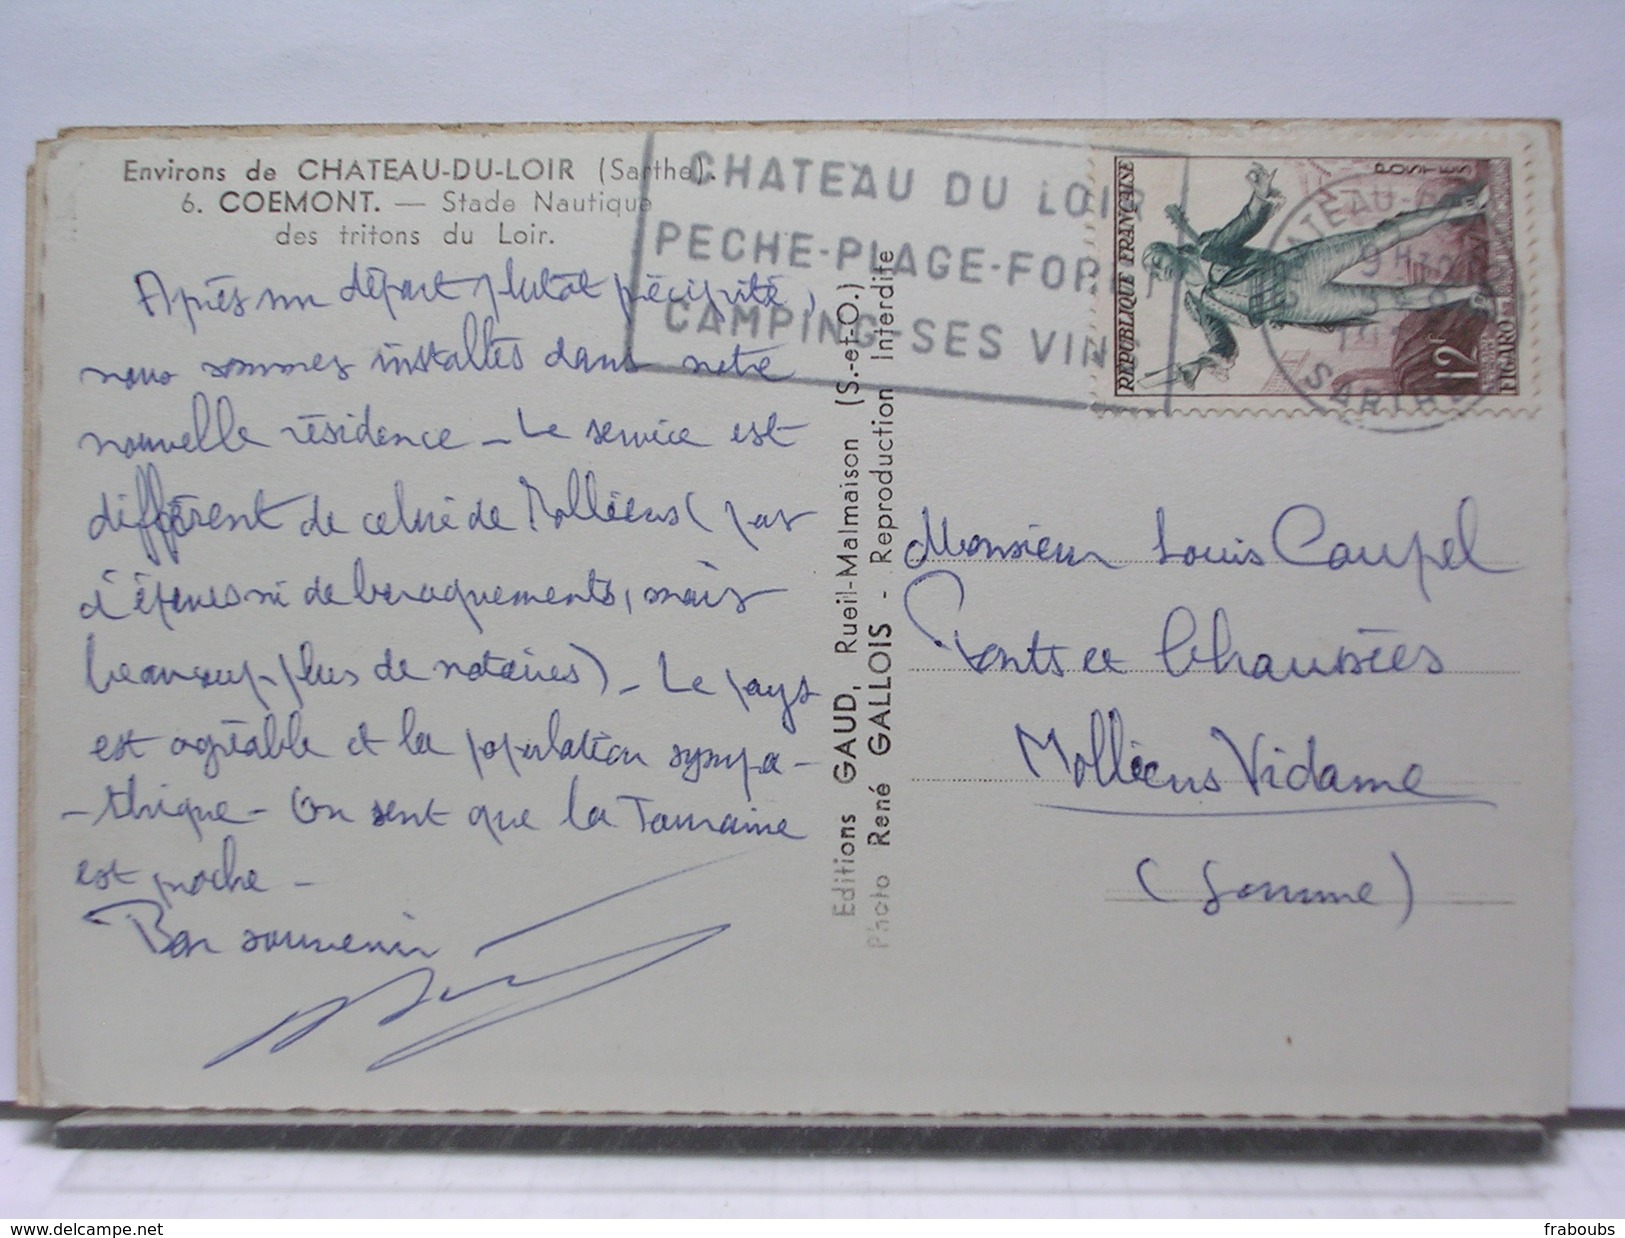 Environs de CHATEAU-DU-LOIR (Sarthe).
6. COEMONT. — Stade Nautique
des tritons du Loir.
Après un départ plutôt précipité,
nous sommes installés dans notre
nouvelle résidence - Le service est
différent de celui de Molliens (pas
de baraquements, mais
beaucoup plus de notaires) - Le pays
est agréable et la population sympa-
-thique - On sent que la Touraine
est proche -
Bon souvenir
CHATEAU DU LOIR
PECHE-PLAGE-FORET
CAMPING-SES VIN
Editions GAUD, Rueil-Malmaison (S.-et-O.)
Photo René GALLOIS - Reproduction Interdite
REPUBLIQUE FRANÇAISE
POSTES
12F
FIGARO
SARTHE
Monsieur Louis Caupel
Ponts et Chaussées
Molliens Vidame
(Somme)
www.delcampe.net
fraboubs